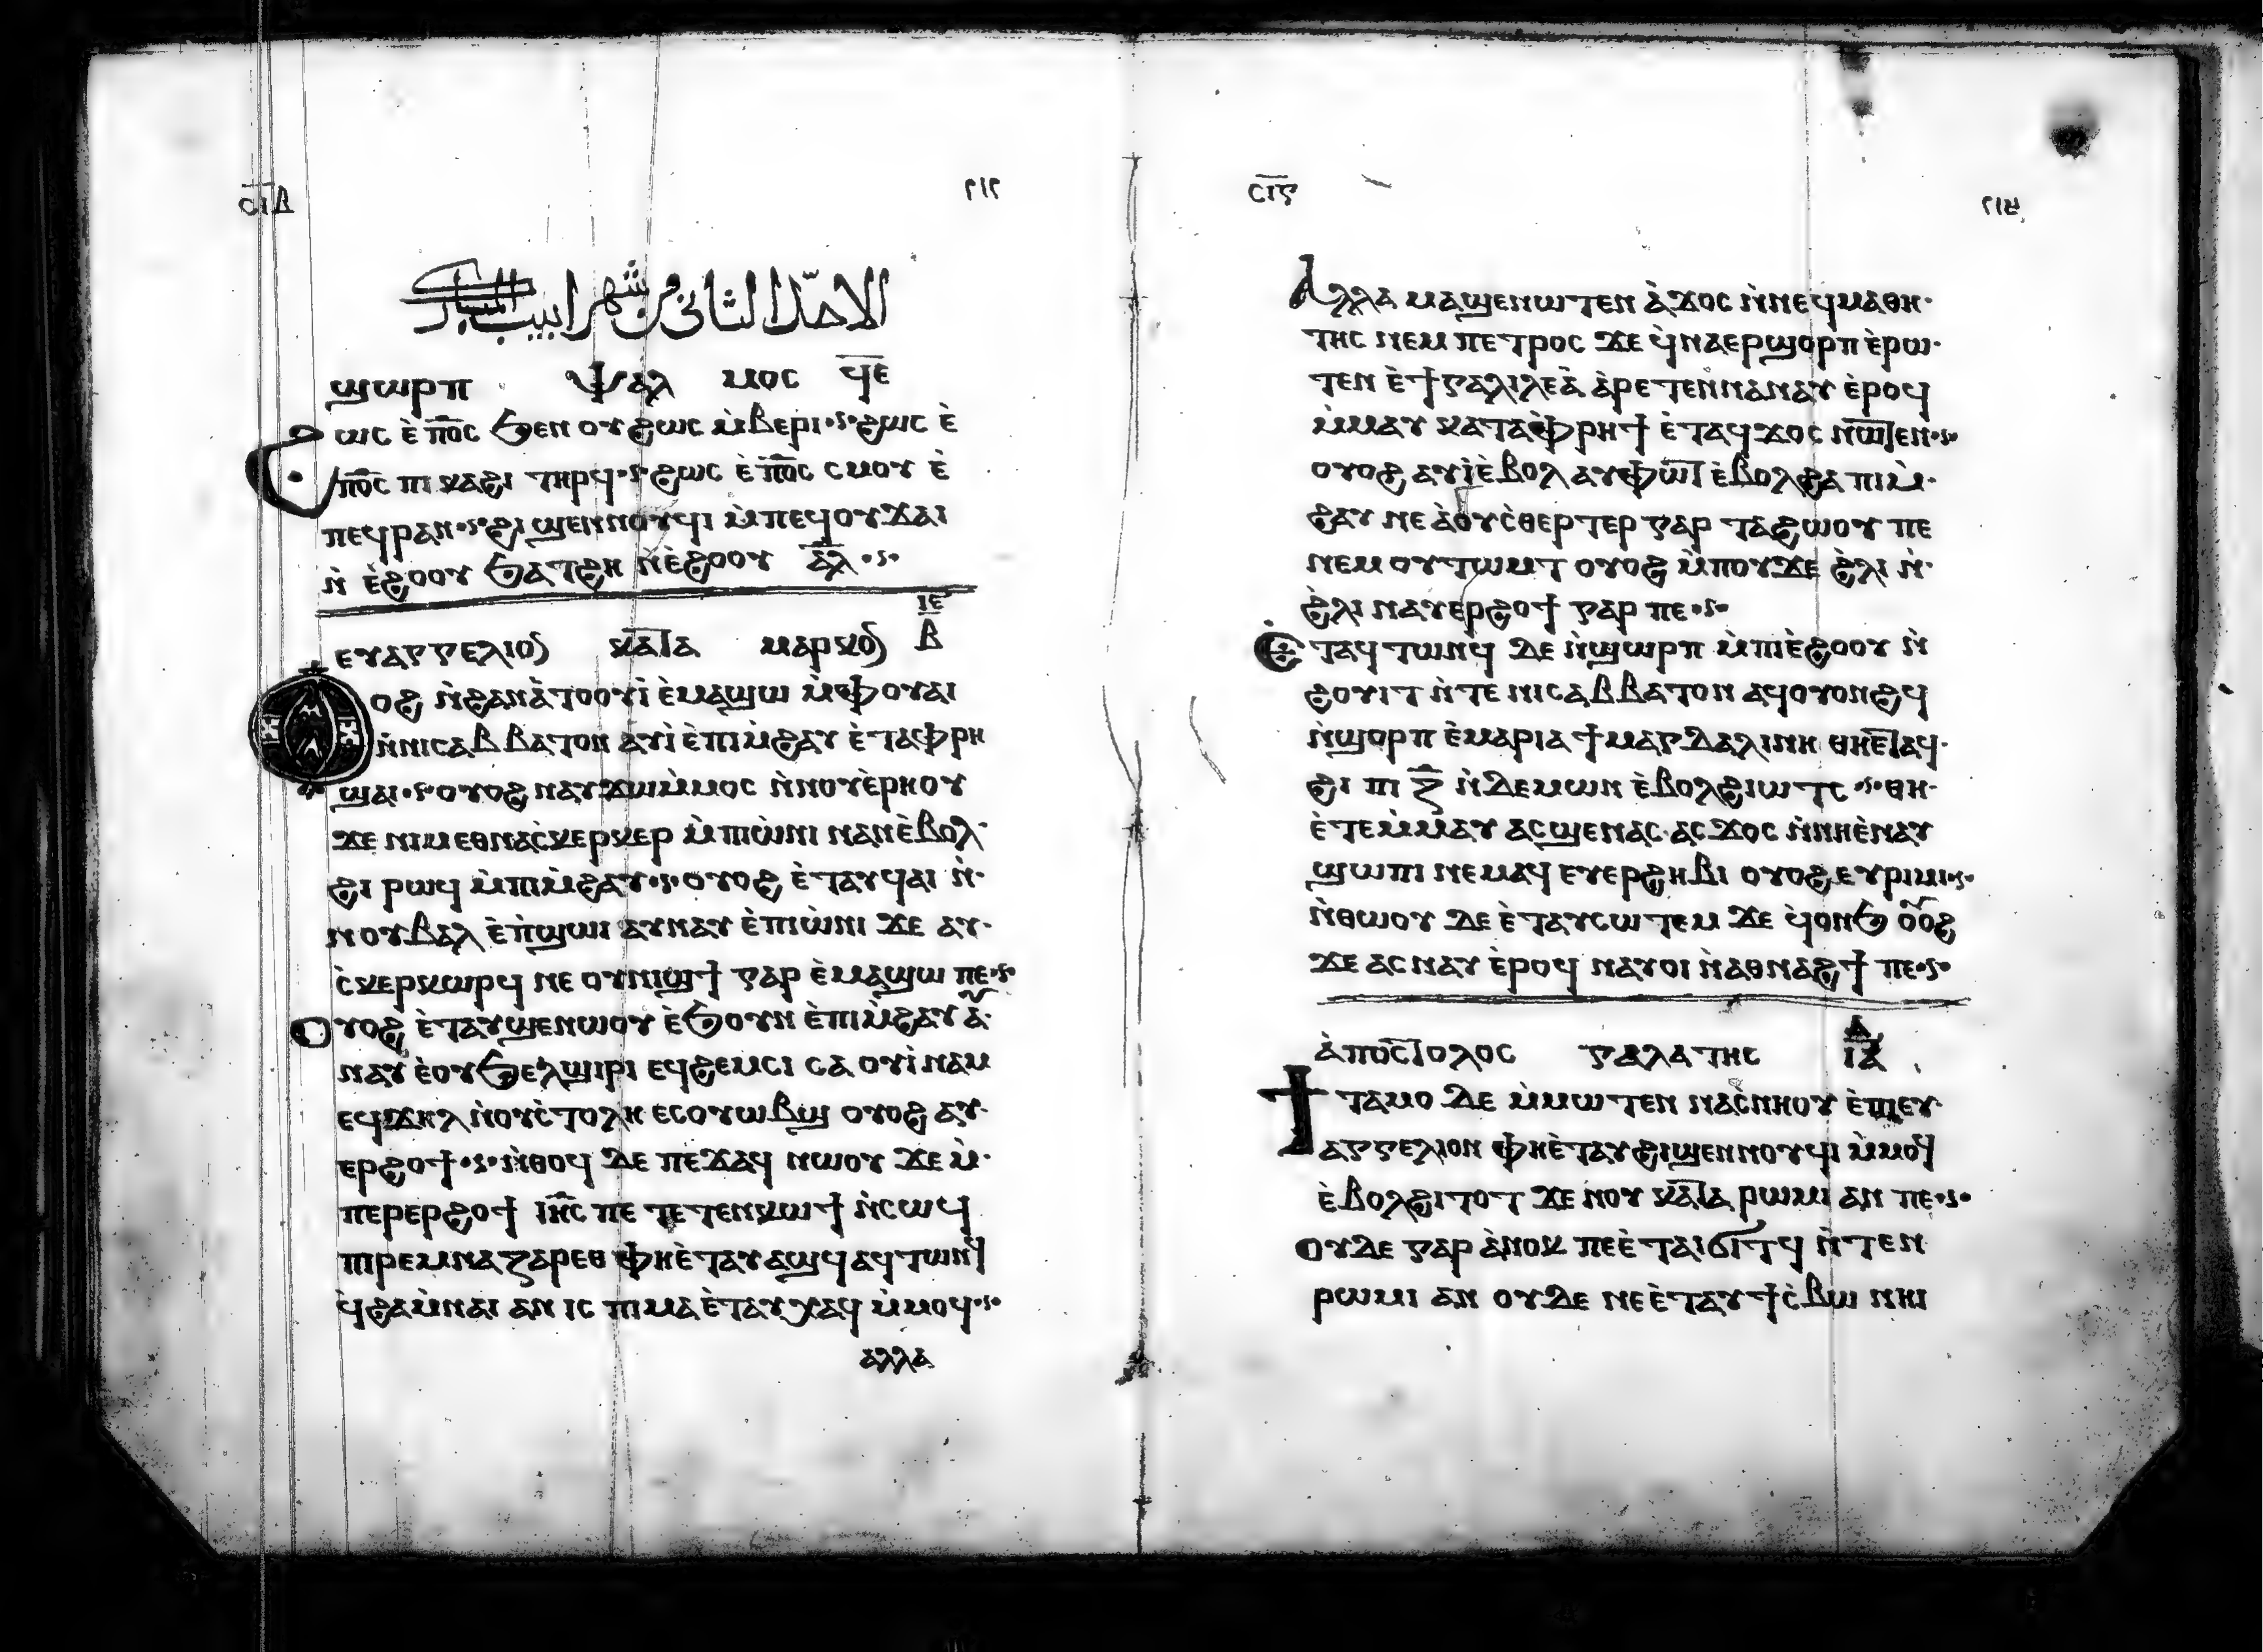 ⲥⲓⲇ
الاحد الثاني من شهر ابيب المبارك
ϣⲱⲣⲡ ⲯⲁⲗ ⲙⲟⲥ ϥⲉ
ϩⲱⲥ ⲉ̀ ⲡ̅ⲟ̅ⲥ̅ ϧⲉⲛ ⲟⲩϩⲱⲥ ⲙ̀ⲃⲉⲣⲓ ϩⲱⲥ ⲉ̀
ⲡ̅ⲟ̅ⲥ̅ ⲡⲓ ⲕⲁϩⲓ ⲧⲏⲣϥ ϩⲱⲥ ⲉ̀ ⲡ̅ⲟ̅ⲥ̅ ⲥⲙⲟⲩ ⲉ̀
ⲡⲉϥⲣⲁⲛ ϩⲓϣⲉⲛⲛⲟⲩϥⲓ ⲙ̀ⲡⲉϥⲟⲩϫⲁⲓ
ⲛ̀ ⲉ̀ϩⲟⲟⲩ ϧⲁⲧϩⲏ ⲛ̀ⲉ̀ϩⲟⲟⲩ ⲁ̅ⲗ̅
ⲓⲉ
ⲉⲩⲁⲅⲅⲉⲗⲓⲟⲛ ⲕⲁⲧⲁ ⲙⲁⲣⲕⲟⲛ ⲃ
ⲟⲩⲟϩ ⲛ̀ϩⲁⲛⲁ̀ⲧⲟⲟⲩⲓ̀ ⲉ̀ⲙⲁϣⲱ ⲙ̀ⲫⲟⲩⲁⲓ
ⲛ̀ⲛⲓⲥⲁⲃⲃⲁⲧⲟⲛ ⲁⲩⲓ̀ ⲉ̀ⲡⲓⲙ̀ϩⲁⲩ ⲉ̀ⲧⲁⲫⲣⲏ
ϣⲁⲓ ⲟⲩⲟϩ ⲛⲁⲩϫⲱⲙ̀ⲙⲟⲥ ⲛ̀ⲛⲟⲩⲉ̀ⲣⲏⲟⲩ
ϫⲉ ⲛⲓⲙⲉⲑⲛⲁⲥ̀ⲕⲉⲣⲕⲉⲣ ⲙ̀ⲡⲓⲱ̀ⲛⲓ ⲛⲁⲛⲉ̀ⲃⲟⲗ
ϩⲓ ⲣⲱϥ ⲙ̀ⲡⲓⲙ̀ϩⲁⲩ ⲟⲩⲟϩ ⲉ̀ⲧⲁⲩϥⲁⲓ ⲛ̀
ⲛⲟⲩⲃⲁⲗ ⲉ̀ⲡ̀ϣⲱⲓ ⲁⲩⲛⲁⲩ ⲉ̀ⲡⲓⲱ̀ⲛⲓ ϫⲉ ⲁⲩ
ⲥ̀ⲕⲉⲣⲕⲱⲣϥ ⲛⲉ ⲟⲩⲛⲓϣϯ ⲅⲁⲣ ⲉ̀ⲙⲁϣⲱ ⲡⲉ
ⲟⲩⲟϩ ⲉ̀ⲧⲁⲩϣⲉⲛⲱⲟⲩ ⲉ̀ϧⲟⲩⲛ ⲉ̀ⲡⲓⲙ̀ϩⲁⲩ ⲁⲩ
ⲛⲁⲩ ⲉ̀ⲟⲩϧⲉⲗϣⲓⲣⲓ ⲉϥϩⲉⲙⲥⲓ ⲥⲁ ⲟⲩⲓ̀ⲛⲁⲙ
ⲉϥϫⲏⲗ ⲛ̀ⲟⲩⲥ̀ⲧⲟⲗⲏ ⲉⲥⲟⲩⲱⲃϣ ⲟⲩⲟϩ ⲁⲩ
ⲉⲣϩⲟϯ ⲛ̀ⲑⲟϥ ⲇⲉ ⲡⲉϫⲁϥ ⲛⲱⲟⲩ ϫⲉ ⲙ̀
ⲡⲉⲣⲉⲣϩⲟϯ ⲓⲏ̅ⲥ̅ ⲡⲉ ⲧⲉⲧⲉⲛⲕⲱϯ ⲛ̀ⲥⲱϥ
ⲡⲓⲣⲉⲙⲛⲁⲍⲁⲣⲉⲑ ⲫⲏⲉ̀ⲧⲁⲩⲁϣϥ ⲁϥⲧⲱⲛϥ
ϥ̀ⲭⲁⲙ̀ⲛⲁⲓ ⲁⲛ ⲓⲥ ⲡⲓⲙⲁ ⲉ̀ⲧⲁⲩⲭⲁϥ ⲙ̀ⲙⲟϥ
ⲁⲗⲗⲁ
ⲥⲓⲋ
ⲁⲗⲗⲁ ⲙⲁϣⲉⲛⲱⲧⲉⲛ ⲁ̀ϫⲟⲥ ⲛ̀ⲛⲉϥⲙⲁⲑⲏ
ⲧⲏⲥ ⲛⲉⲙ ⲡⲉⲧⲣⲟⲥ ϫⲉ ϥ̀ⲛⲁⲉⲣϣⲟⲣⲡ ⲉ̀ⲣⲱ
ⲧⲉⲛ ⲉ̀ϯⲅⲁⲗⲓⲗⲉⲁ̀ ⲁ̀ⲣⲉⲧⲉⲛⲛⲁⲛⲁⲩ ⲉ̀ⲣⲟϥ
ⲙ̀ⲙⲁⲩ ⲕⲁⲧⲁⲫⲣⲏϯ ⲉ̀ⲧⲁϥϫⲟⲥ ⲛⲱⲧⲉⲛ
ⲟⲩⲟϩ ⲁⲩⲓ̀ⲉ̀ⲃⲟⲗ ⲁⲩⲫⲱⲧ ⲉ̀ⲃⲟⲗϩⲁ ⲡⲓⲙ̀
ϩⲁⲩ ⲛⲉ ⲁ̀ⲟⲩⲥ̀ⲑⲉⲣⲧⲉⲣ ⲅⲁⲣ ⲧⲁϩⲱⲟⲩ ⲡⲉ
ⲛⲉⲙ ⲟⲩⲧⲱⲙⲧ ⲟⲩⲟϩ ⲙ̀ⲡⲟⲩϫⲉ ϩ̀ⲗⲓ ⲛ̀
ϩ̀ⲗⲓ ⲛⲁⲩⲉⲣϩⲟϯ ⲅⲁⲣ ⲡⲉ
ⲉ̀ⲧⲁϥⲧⲱⲛϥ ⲇⲉ ⲛ̀ϣⲱⲣⲡ ⲙ̀ⲡⲓⲉ̀ϩⲟⲟⲩ ⲛ̀
ϩⲟⲩⲓⲧ ⲛ̀ⲧⲉ ⲛⲓⲥⲁⲃⲃⲁⲧⲟⲛ ⲁϥⲟⲩⲟⲛϩϥ
ⲛ̀ϣⲟⲣⲡ ⲉ̀ⲙⲁⲣⲓⲁ ϯⲙⲁⲅⲇⲁⲗⲓⲛⲏ ⲑⲏⲉⲧⲁϥ
ϩⲓ ⲡⲓ ⲍ̅ ⲛ̀ⲇⲉⲙⲱⲛ ⲉ̀ⲃⲟⲗϩⲓⲱⲧⲥ ⲑⲏ
ⲉ̀ⲧⲉⲙ̀ⲙⲁⲩ ⲁⲥϣⲉⲛⲁⲥ ⲁⲥϫⲟⲥ ⲛ̀ⲛⲏⲉ̀ⲛⲁⲩ
ϣⲱⲡⲓ ⲛⲉⲙⲁϥ ⲉⲩⲉⲣϩⲏⲃⲓ ⲟⲩⲟϩ ⲉⲩⲣⲓⲙⲓ
ⲛ̀ⲑⲱⲟⲩ ⲇⲉ ⲉ̀ⲧⲁⲩⲥⲱⲧⲉⲙ ϫⲉ ϥ̀ⲟⲛϧ ⲟⲩⲟϩ
ϫⲉ ⲁⲥⲛⲁⲩ ⲉ̀ⲣⲟϥ ⲛⲁⲩⲟⲓ ⲛ̀ⲁⲑⲛⲁϩϯ ⲡⲉ
ⲁ̀ⲡⲟⲥⲧⲟⲗⲟⲥ ⲅⲁⲗⲁⲧⲏⲥ
ϯⲧⲁⲙⲟ ⲇⲉ ⲙ̀ⲙⲱⲧⲉⲛ ⲛⲁⲥ̀ⲛⲏⲟⲩ ⲉ̀ⲡⲓⲉⲩ
ⲁⲅⲅⲉⲗⲓⲟⲛ ⲫⲏⲉ̀ⲧⲁⲩϩⲓϣⲉⲛⲛⲟⲩϥⲓ ⲙ̀ⲙⲟϥ
ⲉ̀ⲃⲟⲗϩⲓⲧⲟⲧ ϫⲉ ⲛⲟⲩ ⲕⲁⲧⲁ ⲣⲱⲙⲓ ⲁⲛ ⲡⲉ
ⲟⲩⲇⲉ ⲅⲁⲣ ⲁ̀ⲛⲟⲕ ⲡⲉⲉ̀ⲧⲁⲓϭⲓⲧϥ ⲛ̀ⲧⲉⲛ
ⲣⲱⲙⲓ ⲁⲛ ⲟⲩⲇⲉ ⲛⲉⲉ̀ⲧⲁⲩϯⲥ̀ⲃⲱ ⲛⲏⲓ